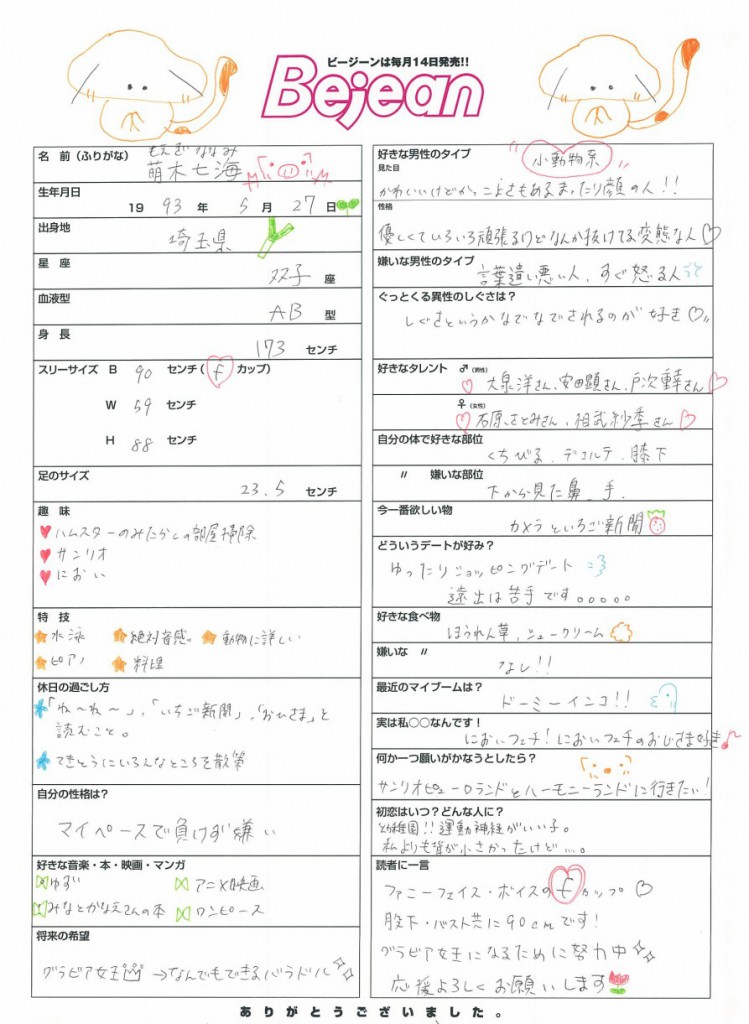 ビージーンは毎月14日発売!!
Bejean
名 前(ふりがな) もえぎななみ
萌木七海
生年月日
19 93 年 5 月 27 日
出身地
埼玉県
星 座
双子 座
血液型
AB 型
身 長
173 センチ
スリーサイズ B 90 センチ(f カップ)
W 59 センチ
H 88 センチ
足のサイズ
23.5 センチ
趣 味
ハムスターのみたらしの部屋掃除
サンリオ
におい
特 技
水泳 絶対音感。 動物に詳しい
ピアノ 料理
休日の過ごし方
「ね〜ね〜」,「いちご新聞」,「おひさま」を
読むこと。
てきとうにいろんなところを散策
自分の性格は?
マイペースで負けず嫌い
好きな音楽・本・映画・マンガ
ゆず アニメ映画
みなとかなえさんの本 ワンピース
将来の希望
グラビア女王→なんでもできるバラドル
好きな男性のタイプ
小動物系
見た目
かわいいけどかっこよさもあるまったり顔の人!!
性格
優しくていろいろ頑張るけどなんか抜けてる変態な人♡
嫌いな男性のタイプ
言葉遣い悪い人、すぐ怒る人
ぐっとくる異性のしぐさは?
しぐさというかなでなでされるのが好き♡
好きなタレント ♂(男性)
大泉洋さん、安田顕さん、戸次重幸さん
♀(女性)
石原さとみさん、相武紗季さん
自分の体で好きな部位
くちびる、デコルテ、膝下
〃 嫌いな部位
下から見た鼻、手、
今一番欲しい物
カメラといちご新聞
どういうデートが好み?
ゆったりショッピングデート
遠出は苦手です。。。。。
好きな食べ物
ほうれん草、シュークリーム
嫌いな 〃
なし!!
最近のマイブームは?
ドーミーインコ!!
実は私○○なんです!
においフェチ!においフェチのおじさま好き♪
何か一つ願いがかなうとしたら?
サンリオピューロランドとハーモニーランドに行きたい!
初恋はいつ?どんな人に?
幼稚園!!運動神経がいい子。
私よりも背が小さかったけど…。
読者に一言
ファニーフェイス・ボイスのfカップ♡
股下・バスト共に90cmです!
グラビア女王になるために努力中
応援よろしくお願いします
ありがとうございました。